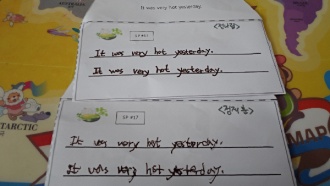 It was very hot yesterday.
It was very hot yesterday.
It was very hot yesterday.
It was very hot yesterday.
It was very hot yesterday.
ANTARCTIC